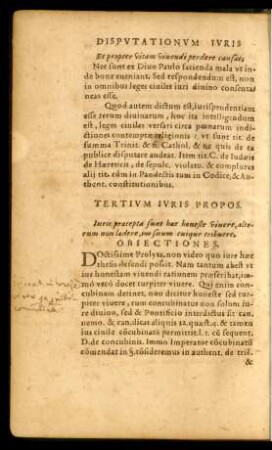 DISPVTATIONVM IVRIS
Et propter vitam viuendi perdere causas.
Nec sunt ex Diuo Paulo facienda mala vt in-
de bona eueniant. Sed respondendum est, non
in omnibus leges ciuiles iuri diuino consenta-
neas esse.
Quod autem dictum est, iurisprudentiam
esse rerum diuinarum, hoc ita intelligendum
est, leges ciuiles versari circa pœnarum indi-
ctiones contemptæ religionis. vt sunt tit. de
summa Trinit. & fi. Cathol. & ne quis de ea
publice disputare audeat. Item tit. C. de Iudæis
de Hæreticis, de sepulc. violato. & complures
alij tit. cùm in Pandectis tum in Codice, &
Authent. constitutionibus.
TERTIVM IVRIS PROPOS.
Iuris præcepta sunt hæc honeste viuere, alte-
rum non lædere, ius suum cuique tribuere.
OBIECTIONES.
DOctissime Prolyta, non video quo iure hæc
thesis defendi possit. Nam tantum abest vt
ius honestam viuendi rationem præscribat, im-
mò verò docet turpiter viuere. Qui enim con-
cubinam detinet, non dicitur honeste sed tur-
piter viuere, cum concubinatus non solum iu-
re diuino, sed & Pontificio interdictus sit can.
nemo. & can. dicat aliquis 32. quæst. 4. & tamen
ius ciuile cōcubinatū permittit. l. 1. cū sequent.
D. de concubinis. Immo Imperator cōcubinatū
cōmendat in §. cōsideremus in authent. de trié.
&